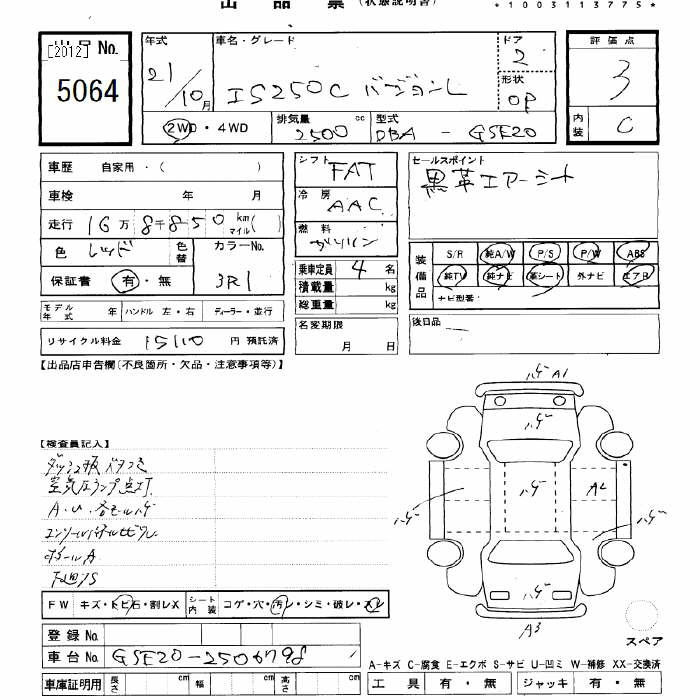 出品票 (状態説明書)
*1003113775*
出品 No.
[2012]
5064
年式 21/10月
車名・グレード IS250C バージョンL
ドア 2
形状 OP
評価点 3
内装 C
2WD・4WD
排気量 2500 cc
型式 DBA - GSE20
車歴 自家用・( )
車検 年 月
走行 16万8千850 km マイル( )
色 レッド 色替 カラーNo. 3R1
保証書 有・無
モデル年式 年 ハンドル 左・右 ディーラー・並行
リサイクル料金 15110 円 預託済
シフト FAT
冷房 AAC
燃料 ガソリン
乗車定員 4 名
積載量 kg
総重量 kg
名変期限 月 日
セールスポイント
黒革エアーシート
装備品
S/R 純A/W P/S P/W ABS
純TV 純ナビ 革シート 外ナビ エアB
ナビ型番:
後日品 —
【出品店申告欄(不良箇所・欠品・注意事項等)】
【検査員記入】
ダッシュ板ベタつき
空気圧ランプ点灯
A・U・各モールハゲ
F W キズ・トビ石・割レX シート内装 コゲ・穴・汚レ・シミ・破レ・スレ
登録 No.
車台 No. GSE20-2506798
車庫証明用 長さ cm 幅 cm 高さ cm
ハゲ A1
ハゲ
ハゲ ハゲ A2
ハゲ ハゲ
ハゲ
A3
スペア
A-キズ C-腐食 E-エクボ S-サビ U-凹ミ W-補修 XX-交換済
工具 有・無 ジャッキ 有・無